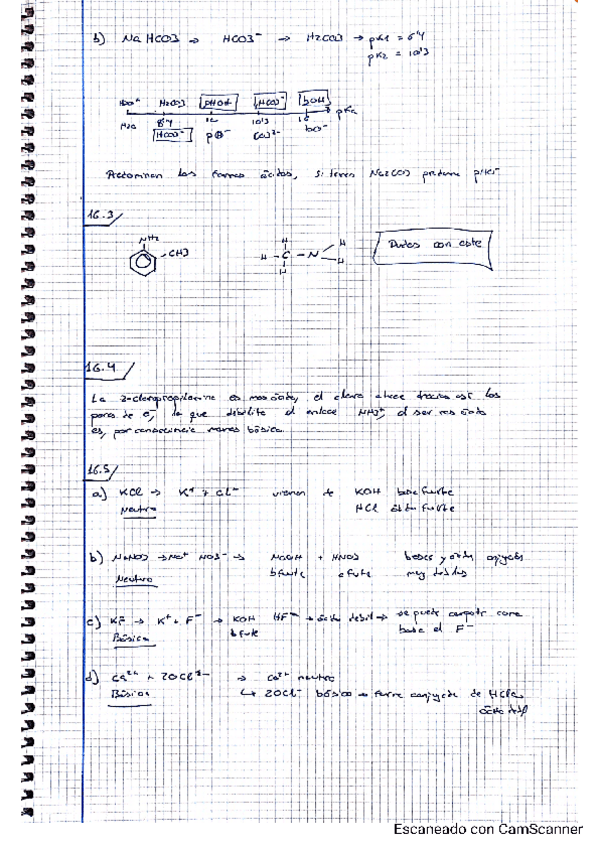 b) NaHCO3 → HCO3⁻ → H2CO3 → pK1 = 6'4
pK2 = 10'3
H2CO3 phOH HCO3⁻ bOH
6'4 12 10'3 16 pKa
H2O HCO3⁻ pO⁻ CO3²⁻
Predominan las formas ácidas, si fueres Na2CO3
16.3
NH2
CH3
H H
H - C - N
H H
Dudas con este
16.4
La 2-cloropropilamina es mas ácida, el cloro atrae hacia así los
pares de e⁻, lo que debilita el enlace NH3⁺, al ser mas ácida
es, por consecuencia menos básica.
16.5
a) KCl → K⁺ + Cl⁻ vienen de KOH base fuerte
Neutro HCl ácido fuerte
b) NaNO3 → Na⁺ NO3⁻ → NaOH + HNO3 bases y ácidos conjugados
Neutro b fuerte a fuerte muy débiles
c) KF → K⁺ + F⁻ → KOH HF → ácido debil → se puede comportar como
Básica b fuerte base el F⁻
d) Ca²⁺ + 2OCl⁻ → Ca²⁺ neutro
Básica ↳ 2OCl⁻ básico → forma conjugada de HClO,
ácido débil
Escaneado con CamScanner